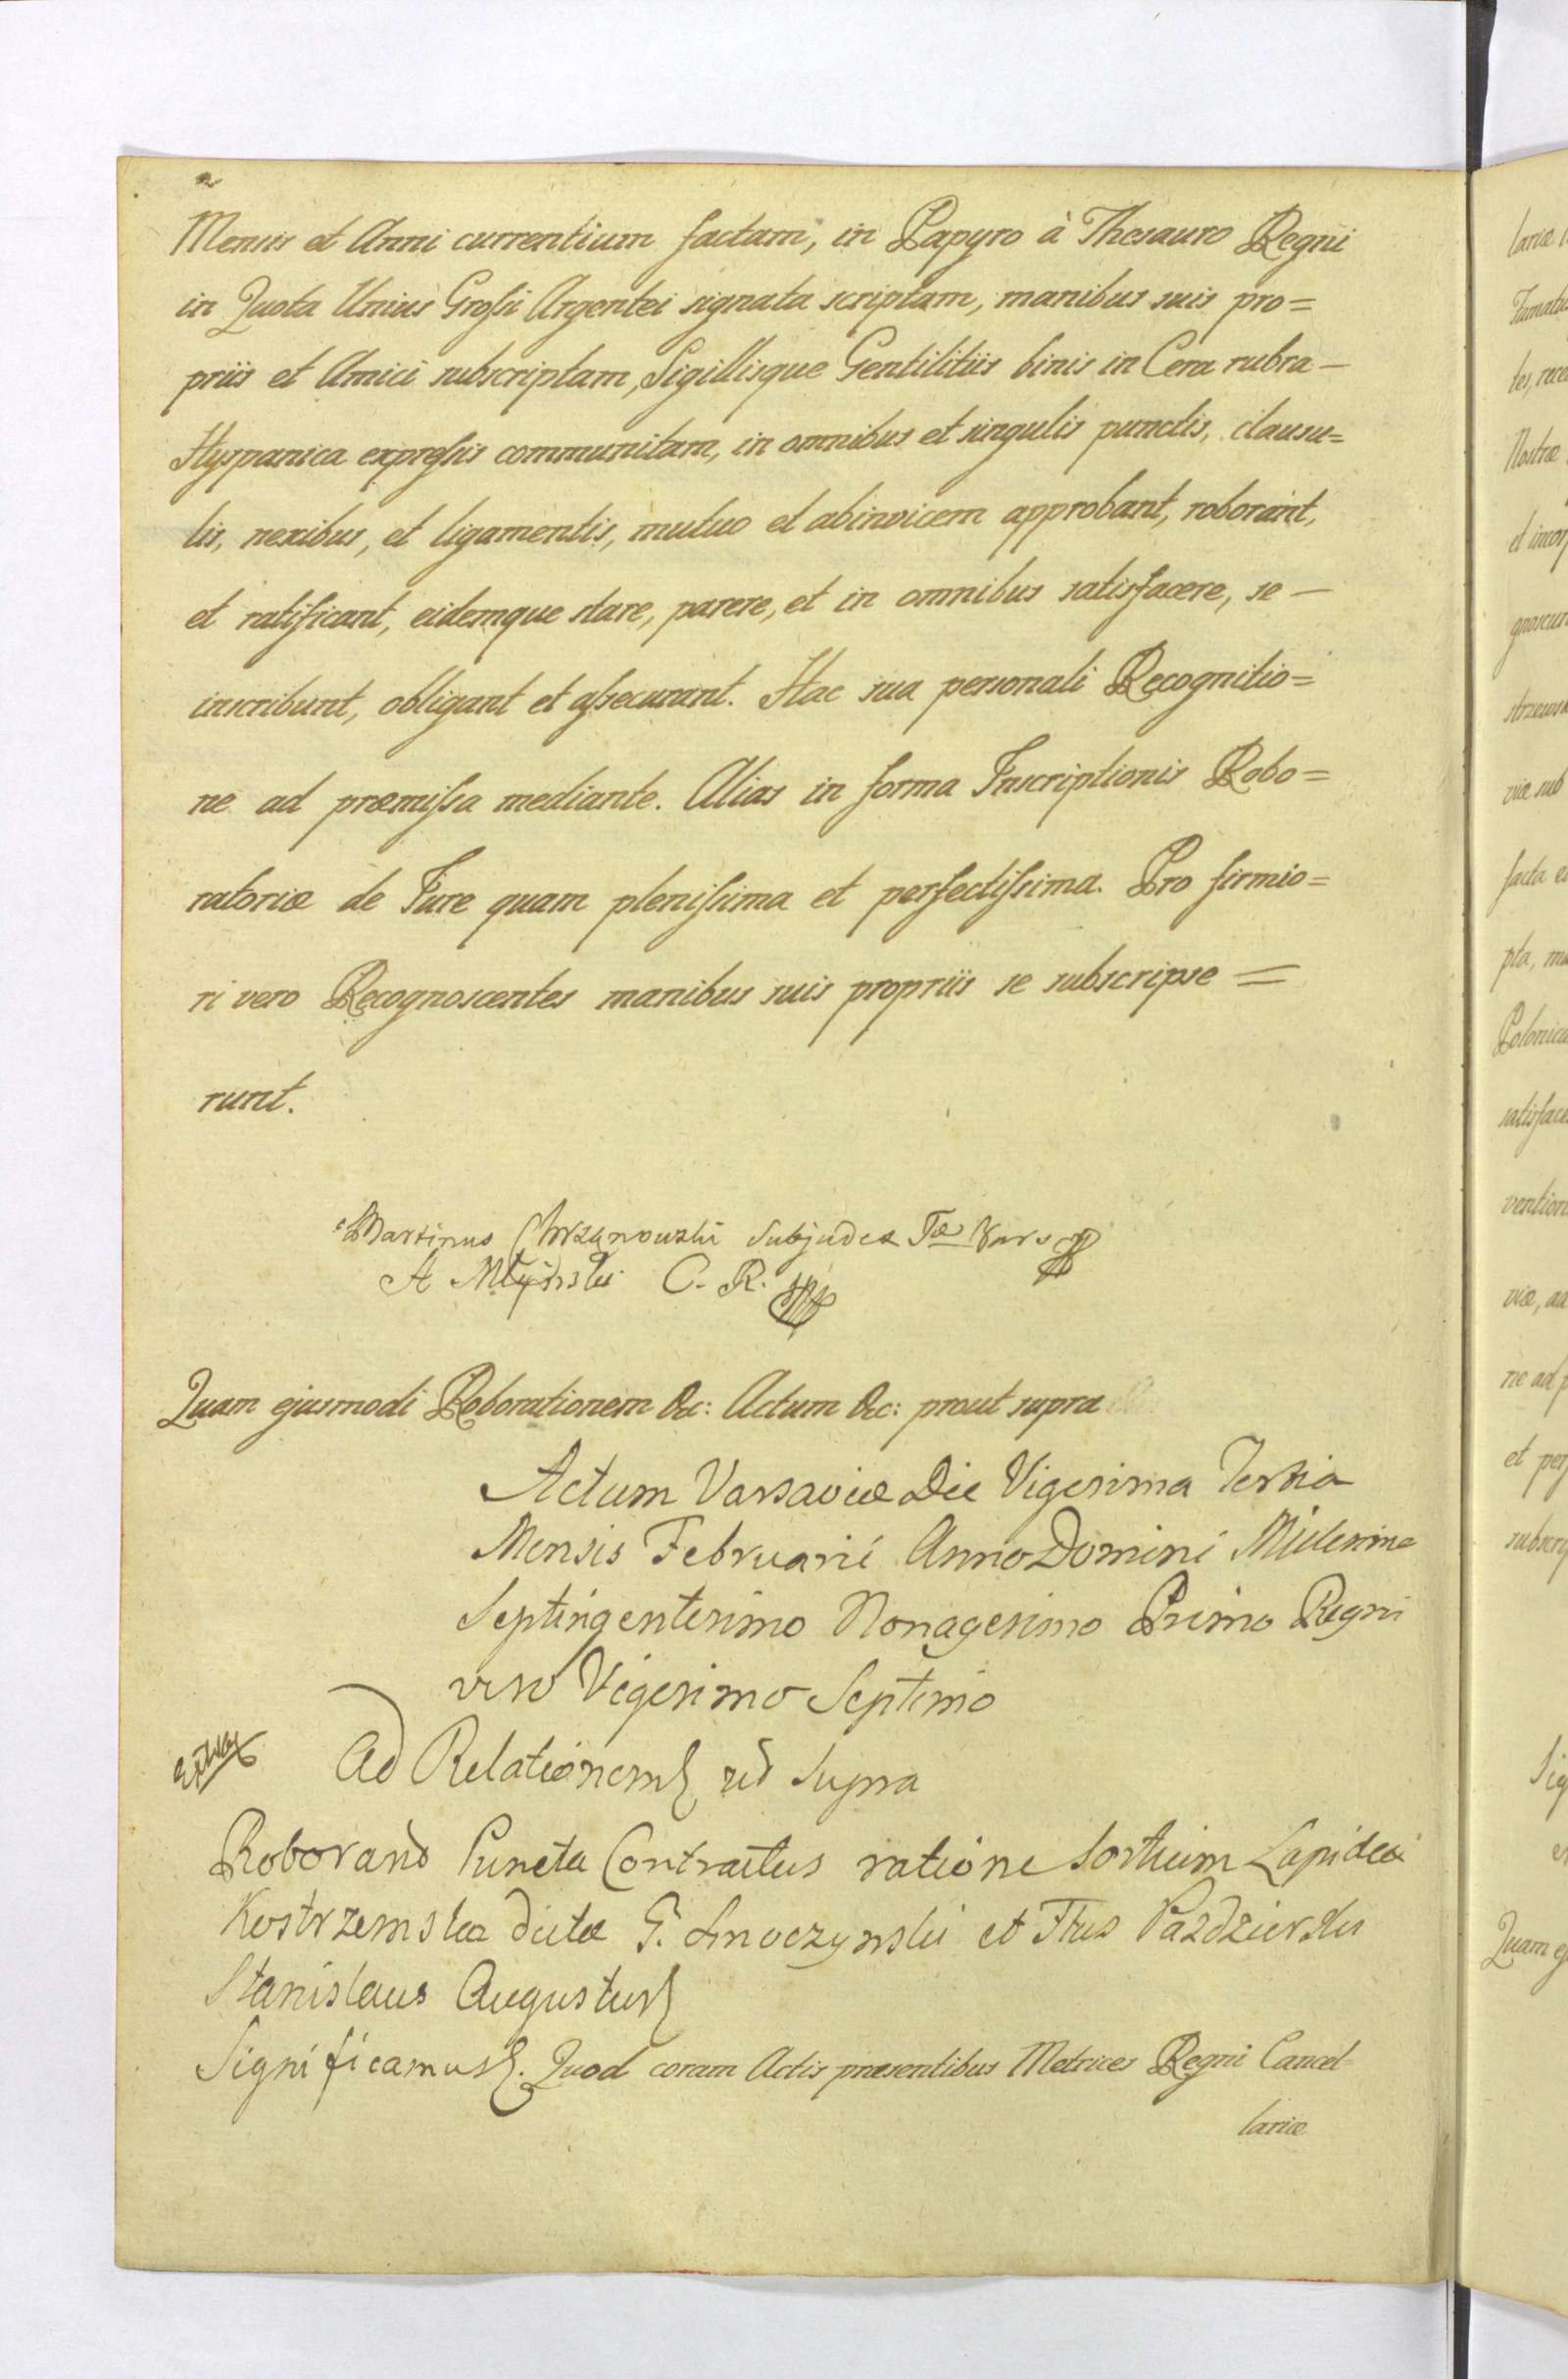 Mensis et Anni currentium factam, in Papyro à Thesauro Regni
in Quota Unius Grossi Argentei signata scriptam, manibus suis pro=
priis et Amici subscriptam, Sigillisque Gentilitiis binis in Cera rubra –
Hyspanica expressis communitam, in omnibus et singulis punctis, clausu=
lis, nexibus, et ligamentis, mutuo et abinvicem approbant, roborant,
et ratificant, eidemque stare, parere, et in omnibus satisfacere, se –
inscribunt, obligant et assecurant. Hac sua personali Recognitio=
ne ad præmissa mediante. Alias in forma Inscriptionis Robo=
ratoriæ de Jure quam plenissima et perfectissima. Pro firmio=
ri vero Recognoscentes manibus suis propriis se subscripse =
runt.
Martinus Chrzanowski Subjudex Tæ Vars
A Młyński C. R.
Quam ejusmodi Roborationem &c: Actum &c: prout supra
Actum Varsaviæ Die Vigesima Tertia
Mensis Februarii Anno Domini Milesimo
Septingentesimo Nonagesimo Primo Regni
vero Vigesimo Septimo
Ad Relationem ut Supra
Roborand Puncta Contractus ratione Sortium Lapideæ
Kostrzemska dictæ G. Smoczynski et Flus Pazdzierski
Stanislaus Augustus
Significamus. Quod coram Actis præsentibus Metrices Regni Cancel=
lariæ
larіæ
Nostræ
gnoscun
facta
pta, mu
Polonica
satisface
viæ, ad
et per
subscrip
Quam ej